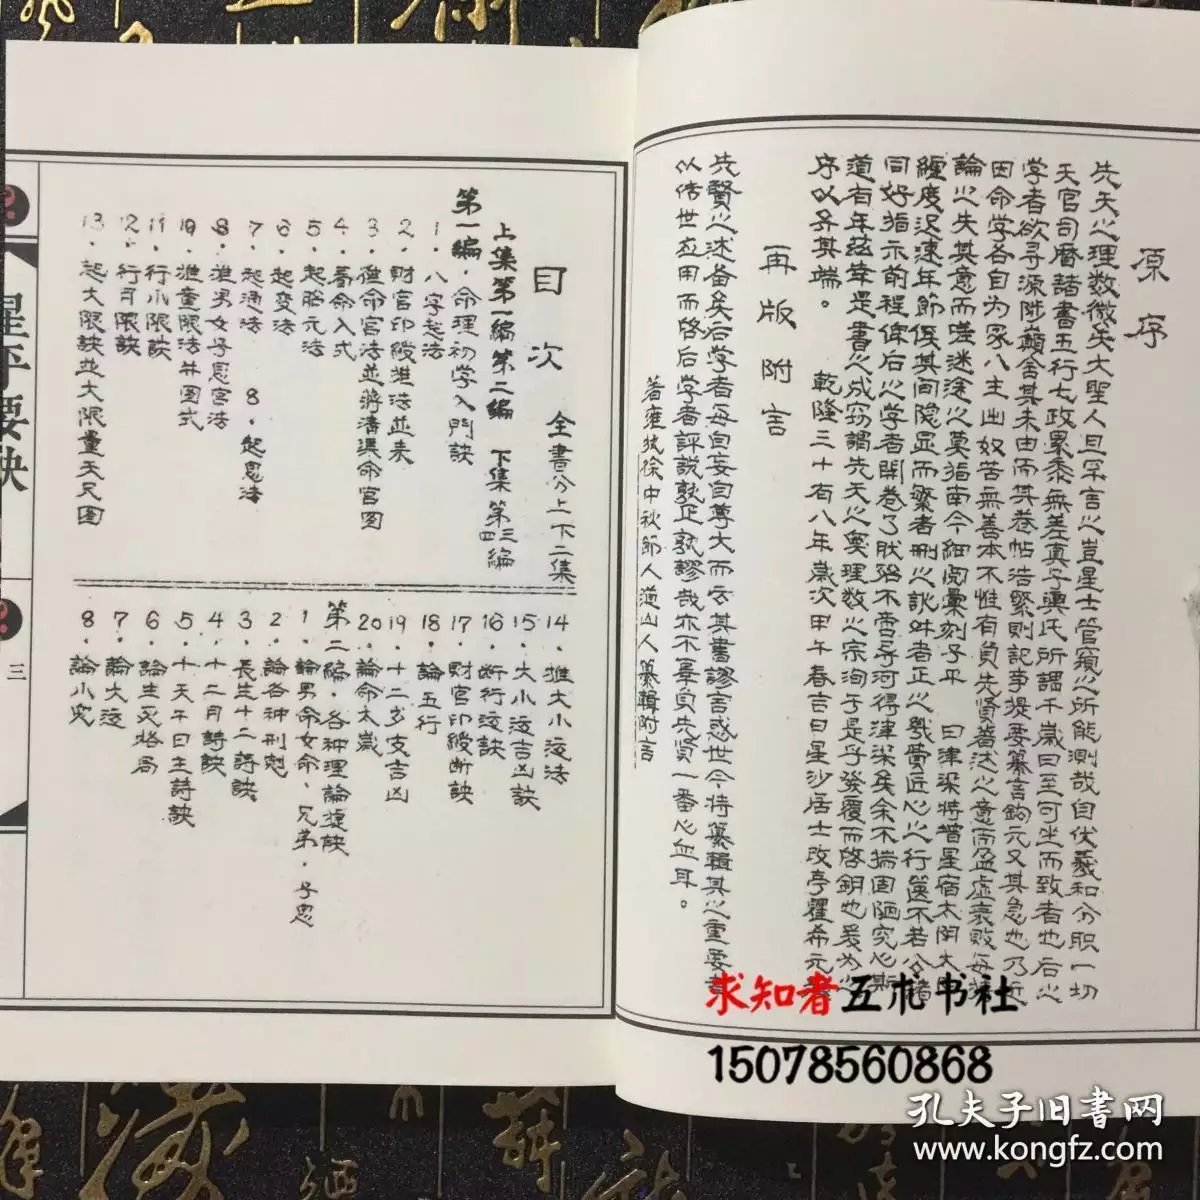 原序
先天之理數微矣大聖人且罕言之豈星士管窺之所能測哉自伏羲和分职一切
天官司曆諸書五行七政累黍無差真子輿氏所謂千歲曰至可坐而致者也后之
学者欲寻源陟巅舍其未由而其卷帖浩繁則記事提要纂言鈎元又其急也乃近
因命学各自为家入主出奴苦無善本不惟有負先贤著述之意而盈虛衰败每
論之失其意而嗟迷途之莫指南今細阅彙刻子平 曰津梁将普星宿太阴太
經度迟速年節候其间隐显而繁者刪之訛舛者正之
同好指示前程俾后之学者開卷了肰
道有年茲箄是書之成窃謂先天之奧理数之宗淘于是乎發覆而啓鈅也爰为之
序以弁其端。 乾隆三十有八年歲次甲午春吉日星沙居士改亭瞿希元
再版附言
先賢之述备矣后学者每自妄自尊大而云其書謬言惑世今将纂輯其之重要
以传世应用而啓后学者評説孰正孰謬哉亦不辜負先贤一番心血耳。
著雍 徐中秋節人道山人纂輯附言
目次 全書分上下二集
上集第一编第二编 下集第三四编
第一编·命理初学入門訣
1·八字起法
2·財官印綬推法並表
3·推命宫法並將清溪命宫图
4·看命入式
5·起胎元法
6·起变法
7·起通法 8·起息法
8·推男女子息宫法
10·推童限法并图式
11·行小限訣
12·行月限訣
13·起大限訣並大限量天尺图
14·推大小运法
15·大小运吉凶訣
16·断行运訣
17·財官印綬断訣
18·論五行
19·十二岁支吉凶
20·論命太歲
第二编·各种理論捷訣
1·論男命女命·兄弟·子息
2·論各种刑剋
3·長生十二詩訣
4·十二月詩訣
5·十天干日主詩訣
6·論生死格局
7·論大运
8·論小児
星平要訣
三
求知者五术书社
15078560868
孔夫子旧書网
www.kongfz.com